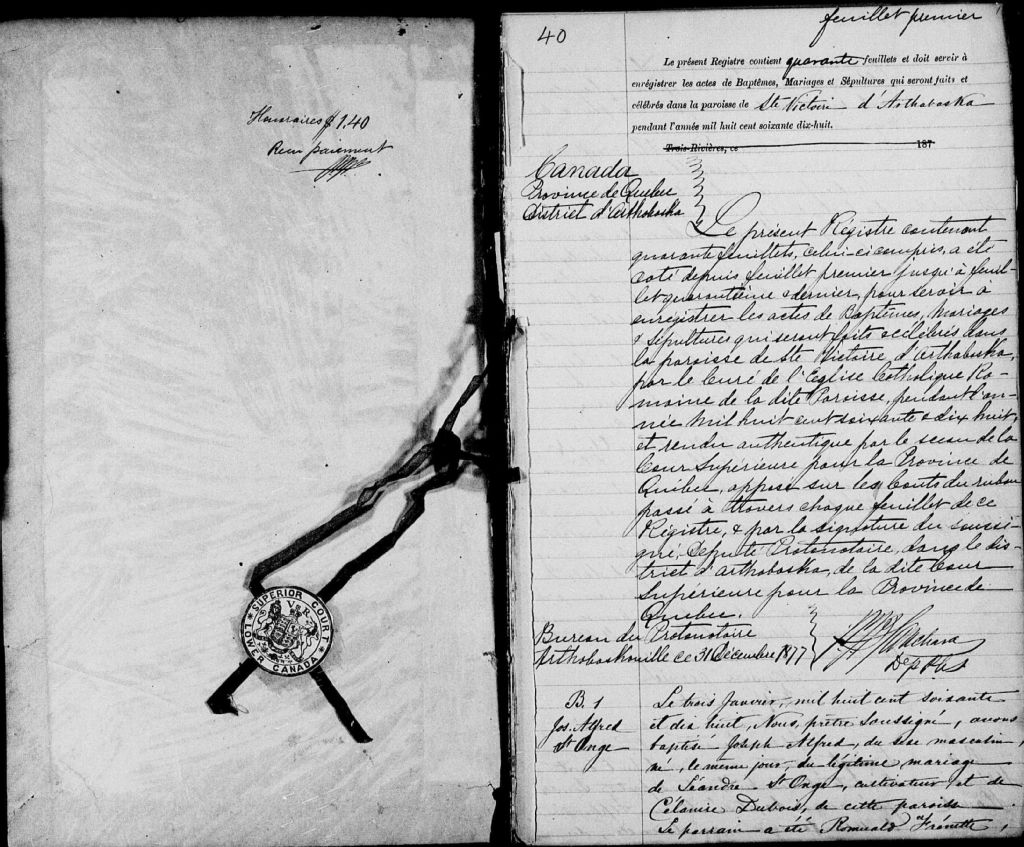 Honoraires $ 1.40
Reçu paiement
SUPERIOR COURT
V R
LOWER CANADA
40
feuillet premier
Le présent Registre contient quarante feuillets et doit servir à
enrégistrer les actes de Baptêmes, Mariages et Sépultures qui seront faits et
célébrés dans la paroisse de Ste Victoire d'Arthabaska
pendant l'année mil huit cent soixante dix-huit.
Trois-Rivières, ce 187
Canada
Province de Quebec
District d'Arthabaska
Le présent Régistre contenant
quarante feuillets, celui-ci compris, a été
coté depuis feuillet premier jusqu'à feuil-
let quarantième & dernier, pour servir à
enrégistrer les actes de Baptêmes, Mariages
& Sépultures qui seront faits & célébrés dans
la paroisse de Ste Victoire d'Arthabaska,
par le Curé de l'Eglise Catholique Ro-
maine de la dite Paroisse, pendant l'an-
née mil huit cent soixante & dix huit,
et rendu authentique par le sceau de la
Cour Supérieure pour la Province de
Québec, apposé sur les bouts du ruban
passé à travers chaque feuillet de ce
Régistre, & par la signature du soussi-
gné, Député Protonotaire, dans le dis-
trict d'Arthabaska, de la dite Cour
Supérieure pour la Province de
Québec.
Bureau du Protonotaire
Arthabaskaville ce 31 Décembre 1877
Dep P.C.S
B. 1
Jos. Alfred
St Onge
Le trois Janvier, mil huit cent soixante
et dix huit, Nous, prêtre soussigné, avons
baptisé Joseph Alfred, du sexe masculin,
né, le même jour, du légitime mariage
de Léandre St Onge, cultivateur, et de
Célanire Dubois, de cette paroisse
Le parrain a été Romuald Frénette,